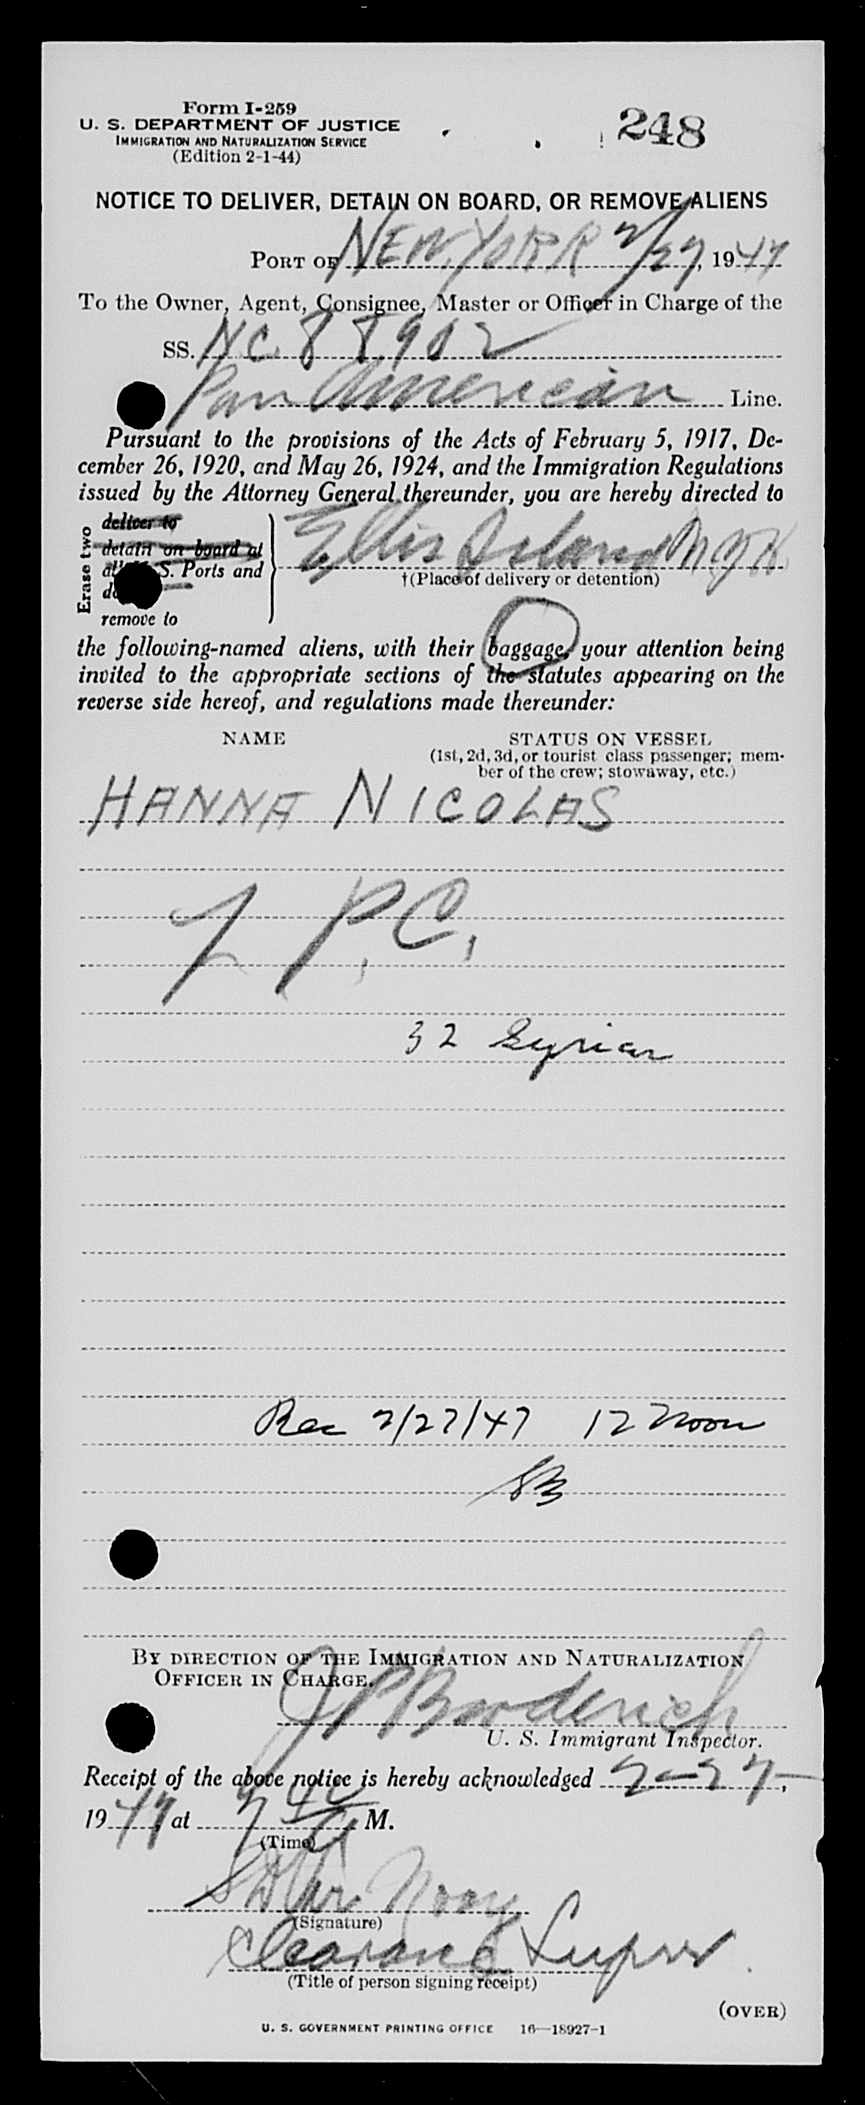 Form I-259
U. S. DEPARTMENT OF JUSTICE
IMMIGRATION AND NATURALIZATION SERVICE
(Edition 2-1-44)
248
NOTICE TO DELIVER, DETAIN ON BOARD, OR REMOVE ALIENS
PORT OF NEW YORK 2/27, 1947
To the Owner, Agent, Consignee, Master or Officer in Charge of the
SS. N.C. 88902
Pan American Line.
Pursuant to the provisions of the Acts of February 5, 1917, De-
cember 26, 1920, and May 26, 1924, and the Immigration Regulations
issued by the Attorney General thereunder, you are hereby directed to
Erase two
deliver to
detain on board at
all U. S. Ports and
remove to
Ellis Island N.Y.H.
†(Place of delivery or detention)
the following-named aliens, with their baggage, your attention being
invited to the appropriate sections of the statutes appearing on the
reverse side hereof, and regulations made thereunder:
NAME STATUS ON VESSEL
(1st, 2d, 3d, or tourist class passenger; mem-
ber of the crew; stowaway, etc.)
HANNA NICOLAS
P.C.
32 Syrian
Rec 2/27/47 12 Noon
SB
BY DIRECTION OF THE IMMIGRATION AND NATURALIZATION
OFFICER IN CHARGE.
J P Broderich
U. S. Immigrant Inspector.
Receipt of the above notice is hereby acknowledged 2-27-,
1947, at 7 40 A M.
(Time)
(Signature)
Clearance Superv.
(Title of person signing receipt)
(OVER)
U. S. GOVERNMENT PRINTING OFFICE 16—18927-1